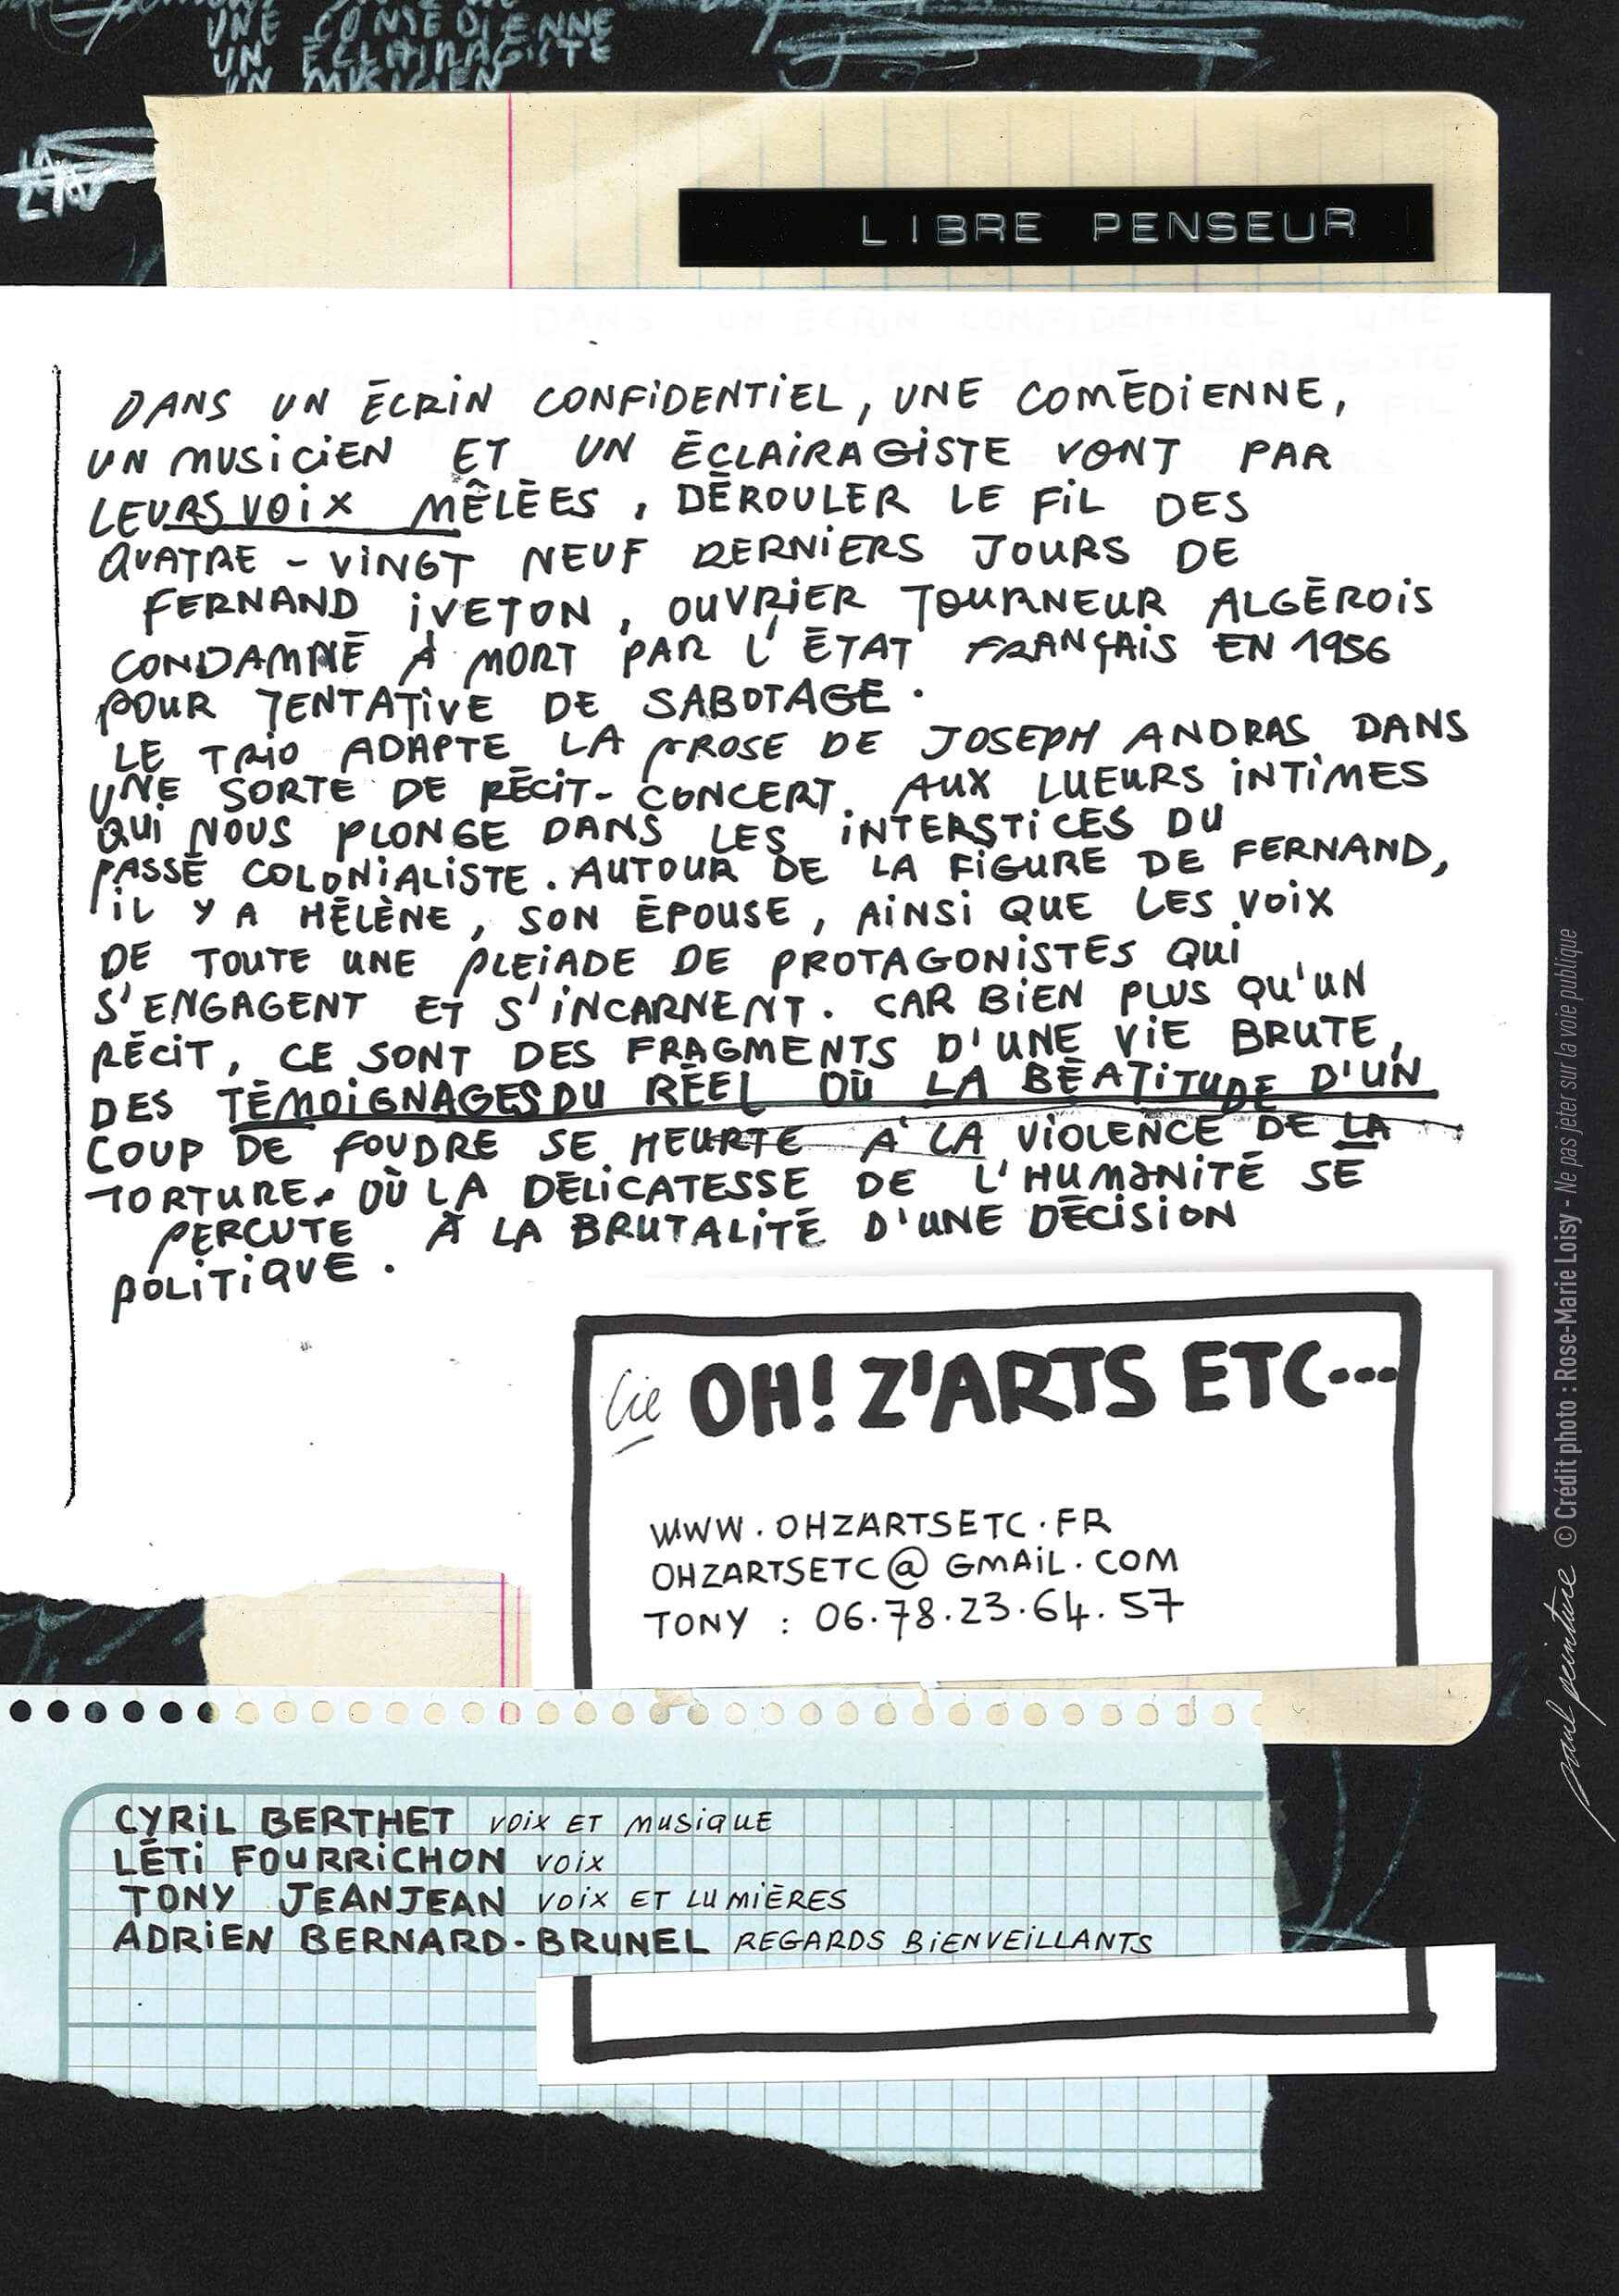 UNE COMEDIENNE
UN ECLAIRAGISTE
UN MUSICIEN
LIBRE PENSEUR
DANS UN ÉCRIN CONFIDENTIEL, UNE COMÉDIENNE,
UN MUSICIEN ET UN ÉCLAIRAGISTE VONT PAR
LEURS VOIX MÊLÉES, DÉROULER LE FIL DES
QUATRE-VINGT NEUF DERNIERS JOURS DE
FERNAND IVETON, OUVRIER TOURNEUR ALGÉROIS
CONDAMNÉ À MORT PAR L'ÉTAT FRANÇAIS EN 1956
POUR TENTATIVE DE SABOTAGE.
LE TRIO ADAPTE LA PROSE DE JOSEPH ANDRAS DANS
UNE SORTE DE RÉCIT-CONCERT. AUX LUEURS INTIMES
QUI NOUS PLONGE DANS LES INTERSTICES DU
PASSÉ COLONIALISTE. AUTOUR DE LA FIGURE DE FERNAND,
IL Y A HÉLÈNE, SON ÉPOUSE, AINSI QUE LES VOIX
DE TOUTE UNE PLEIADE DE PROTAGONISTES QUI
S'ENGAGENT ET S'INCARNENT. CAR BIEN PLUS QU'UN
RÉCIT, CE SONT DES FRAGMENTS D'UNE VIE BRUTE,
DES TÉMOIGNAGES DU RÉEL OÙ LA BÉATITUDE D'UN
COUP DE FOUDRE SE HEURTE À LA VIOLENCE DE LA
TORTURE. OÙ LA DÉLICATESSE DE L'HUMANITÉ SE
PERCUTE À LA BRUTALITÉ D'UNE DÉCISION
POLITIQUE.
Cie OH! Z'ARTS ETC...
WWW.OHZARTSETC.FR
OHZARTSETC@GMAIL.COM
TONY : 06.78.23.64.57
CYRIL BERTHET VOIX ET MUSIQUE
LÉTI FOURRICHON VOIX
TONY JEANJEAN VOIX ET LUMIÈRES
ADRIEN BERNARD-BRUNEL REGARDS BIENVEILLANTS
paul peinture © Crédit photo : Rose-Marie Loisy - Ne pas jeter sur la voie publique